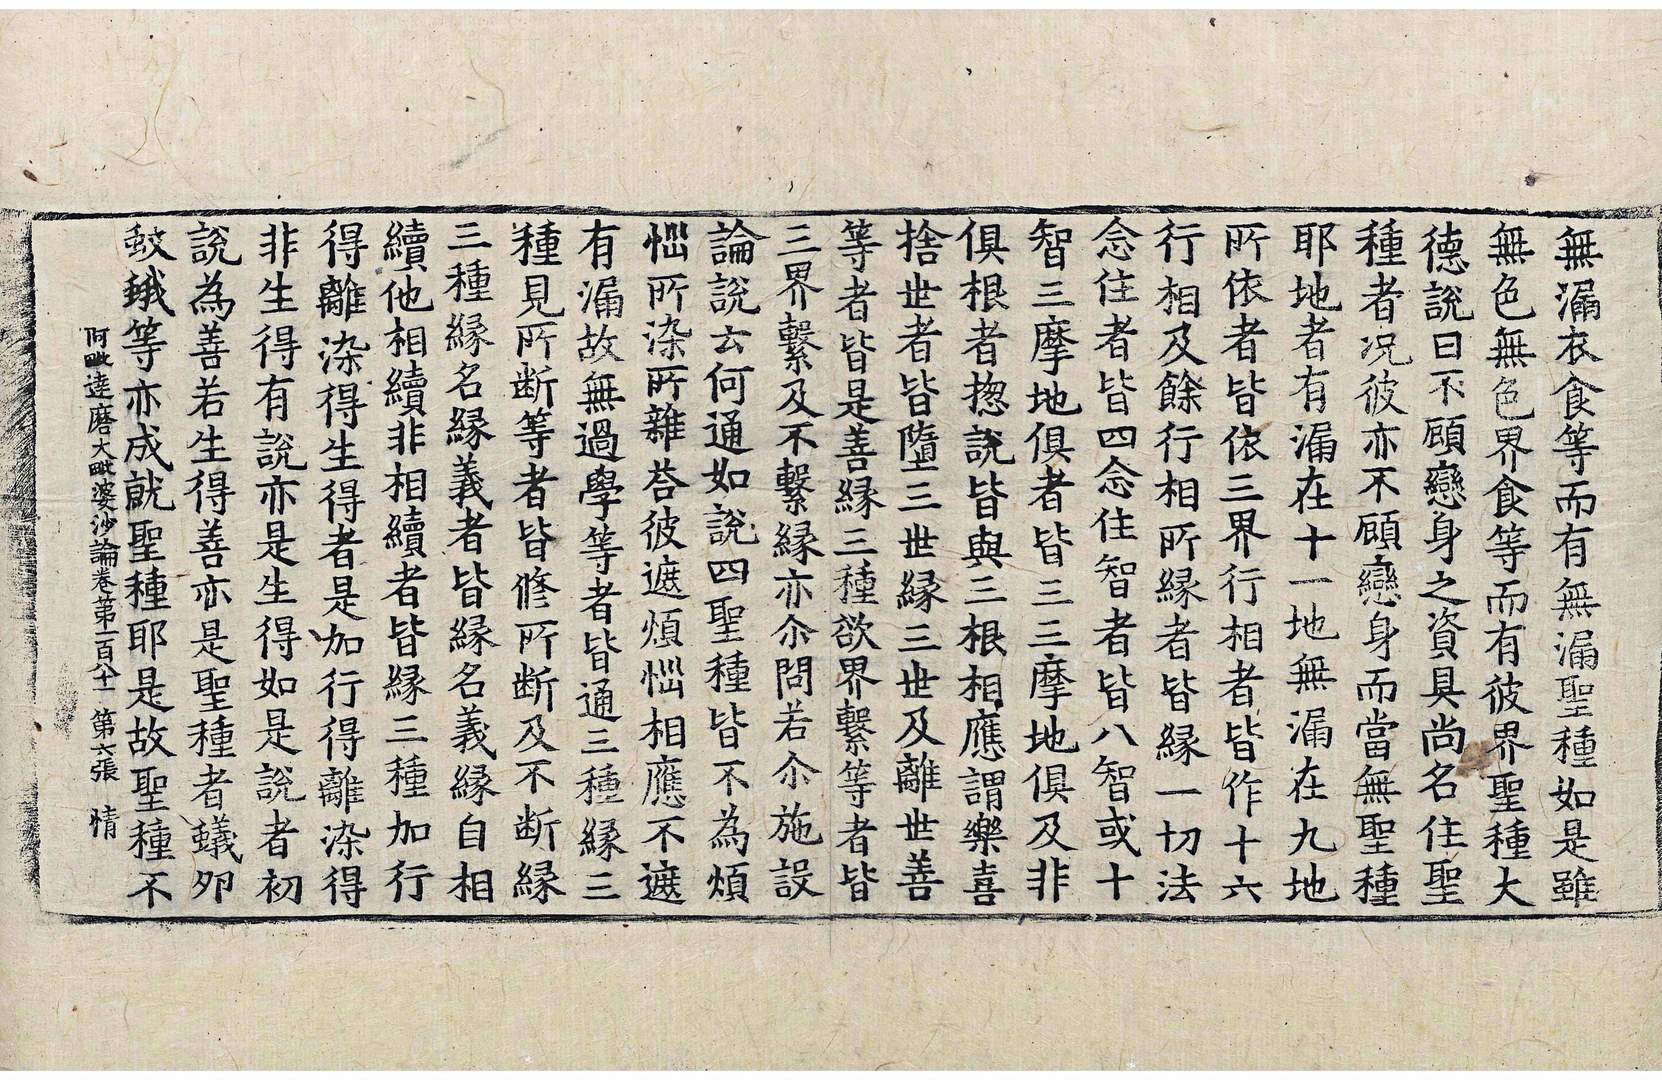 無漏衣食等而有無漏聖種如是雖
無色無色界食等而有彼界聖種大
德說曰不顧戀身之資具尚名住聖
種者况彼亦不顧戀身而當無聖種
耶地者有漏在十一地無漏在九地
所依者皆依三界行相者皆作十六
行相及餘行相所緣者皆縁一切法
念住者皆四念住智者皆八智或十
智三摩地俱者皆三三摩地俱及非
俱根者揔說皆與三根相應謂樂喜
捨世者皆墮三世縁三世及離世善
等者皆是善縁三種欲界繫等者皆
三界繫及不繫縁亦尒問若尒施設
論說云何通如說四聖種皆不為煩
惱所染所雜荅彼遮煩惱相應不遮
有漏故無過學等者皆通三種縁三
種見所断等者皆修所断及不断縁
三種縁名縁義者皆縁名義縁自相
續他相續非相續者皆縁三種加行
得離染得生得者是加行得離染得
非生得有說亦是生得如是說者初
說為善若生得善亦是聖種者蟻卵
蚊蛾等亦成就聖種耶是故聖種不
阿毗達磨大毗婆沙論卷第一百八十一 第六張 情